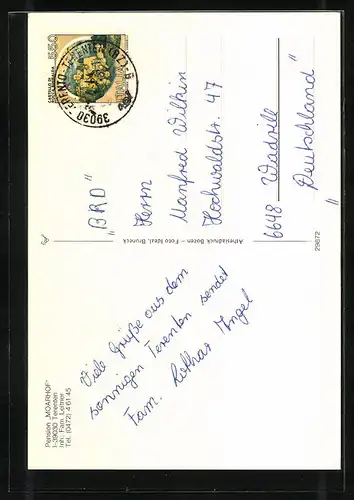 Pension „MOARHOF"
I-39030 Terenten
Inh. Fam. Leitner
Tel. (0472) 46145
Viele Grüße aus dem
sonnigen Terenten sendet
Fam. Lothar Engel
Athesiadruck Bozen – Foto Ideal, Bruneck
29872
550
39030 - TERENTO - TERENTEN (BZ) - B
"BRD"
Herrn
Manfred Wilkin
Hochwaldstr. 47
6648 Wadrill
"Deutschland"